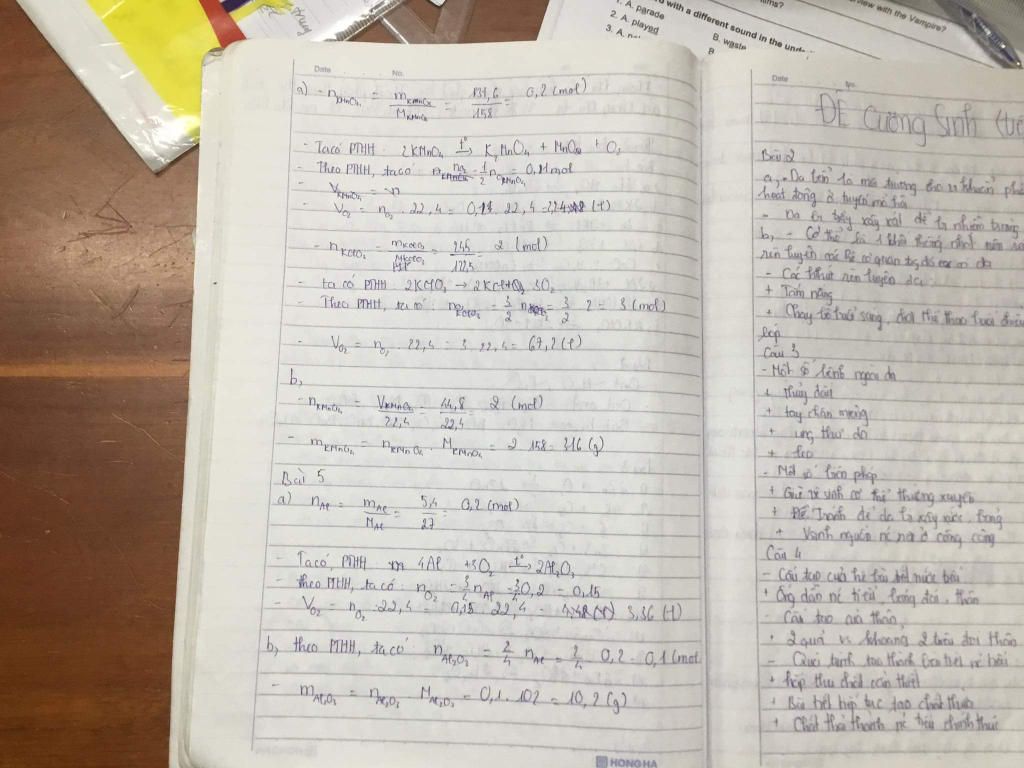 view with the Vampire?
films?
with a different sound in the und
1. A. parade
B. waste
2. A. played
3. A.
B
Date No.
a) - nKMnO₄ = mKMnO₄ / MKMnO₄ = 131,6 / 158 = 0,2 (mol)
- Ta có PTHH: 2KMnO₄ t°→ K₂MnO₄ + MnO₂ + O₂
- Theo PTHH, ta có: nO₂ = 1/2 nKMnO₄ = 0,1 mol
- VKMnO₄ = n
- VO₂ = nO₂ . 22,4 = 0,1 . 22,4 = 2,24 (l)
- nKClO₃ = mKClO₃ / MKClO₃ = 245 / 122,5 = 2 (mol)
- ta có PTHH 2KClO₃ → 2KCl + 3O₂
- Theo PTHH, ta có: nO₂ = 3/2 nKClO₃ = 3/2 . 2 = 3 (mol)
- VO₂ = nO₂ . 22,4 = 3 . 22,4 = 67,2 (l)
b,
- nKMnO₄ = VKMnO₄ / 22,4 = 44,8 / 22,4 = 2 (mol)
- mKMnO₄ = nKMnO₄ . MKMnO₄ = 2 . 158 = 316 (g)
Bài 5
a) nAl = mAl / MAl = 5,4 / 27 = 0,2 (mol)
- Ta có, PTHH 4Al + 3O₂ t°→ 2Al₂O₃
- theo PTHH, ta có: nO₂ = 3/4 nAl = 3/4 0,2 = 0,15
- VO₂ = nO₂ . 22,4 = 0,15 . 22,4 = 3,36 (l)
b, theo PTHH, ta có: nAl₂O₃ = 2/4 nAl = 2/4 0,2 = 0,1 (mol
- mAl₂O₃ = nAl₂O₃ . MAl₂O₃ = 0,1 . 102 = 10,2 (g)
HONG HA
Date No.
ĐỀ Cương Sinh
Bài 2
a, - Da bẩn là môi trường cho vi khuẩn
hoạt động ở tuyến mồ hôi
- Da bị trầy xước dễ bị nhiễm trùng
b, - Cơ thể là 1 khối thống nhất nên
rèn luyện các cơ quan
- Các hình rèn luyện da:
+ Tắm nắng
+ Chạy bộ buổi sáng, chơi thể thao buổi chiều
Câu 3
- Một số bệnh ngoài da
+ thủy đậu
+ tay chân miệng
+ ung thư da
- Một số biện pháp
+ Giữ vệ sinh cơ thể thường xuyên
+ Tránh để da bị xây xước, bỏng
+ Vệ sinh nguồn nc nơi ở công cộng
Câu 4
- Cấu tạo của hệ bài tiết nước tiểu
+ Ống dẫn nc tiểu, bóng đái, thận
- Cấu tạo của thận,
+ 2 quả vs khoảng 2 triệu đơn thận
- Quá trình tạo thành
+ hấp thu chất cần thiết
+ Bài tiết tiếp tục tạo chất thừa
+ Chất thải thành nc tiểu chính thức